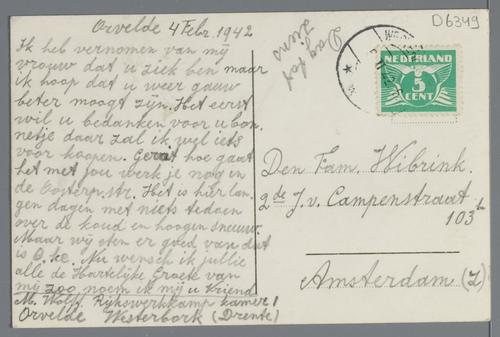 Orvelde 4 Febr. 1942
Ik heb vernomen van mij
vrouw dat u ziek ben maar
ik hoop dat u weer gauw
beter moogt zijn. Het eerst
wil u bedanken voor u bon.
netje daar zal ik wel iets
voor koopen. Gerrit hoe gaat
het met jou werk je nog in
de Oosterp.str. Het is hier lan.
gen dagen met niets tedoen
over de koud en hoogen sneeuw.
Maar wij eten er goed van dat
is O.ke. Nu wensch ik jullie
alle de Hartelijke Groete van
mij zoo noem ik mij u Vriend
M. Wolff Rijkswerkkamp kamer 1
Orvelde Westerbork (Drente)
Dag tot
ziens
D6349
NEDERLAND
5
CENT
Den Fam. Wibrink.
2de J. v. Campenstraat
103 h
Amsterdam (Z)